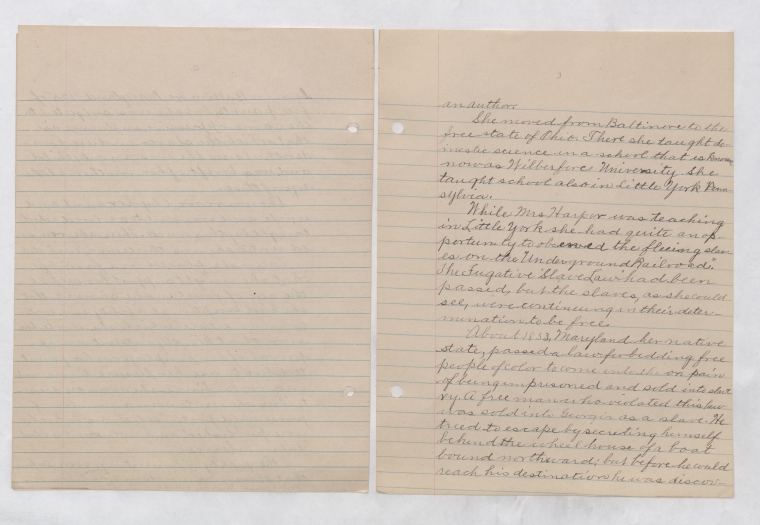 3
an author.
She moved from Baltimore to the
free state of Ohio. There she taught do-
mestic science in a school that is known
now as Wilberforce University. She
taught school also in Little York Penn-
sylvia.
While Mrs Harper was teaching
in Little York she had quite an op-
portunity to observed the fleeing slav-
es on the "Underground Railroad".
The Fugative Slave Law had been
passed, but the slaves, as she could
see, were continueing in their deter-
mination to be free.
About 1853, Maryland her native
state, passed a law forbidding free
people of color to come into the on pain
of being imprisoned and sold into slav
ry. A free man who violated this law
was sold into Georgia as a slave. He
tried to escape by secreting himself
behind the wheel house of a boat
bound northward; but before he would
reach his destination, he was discov-